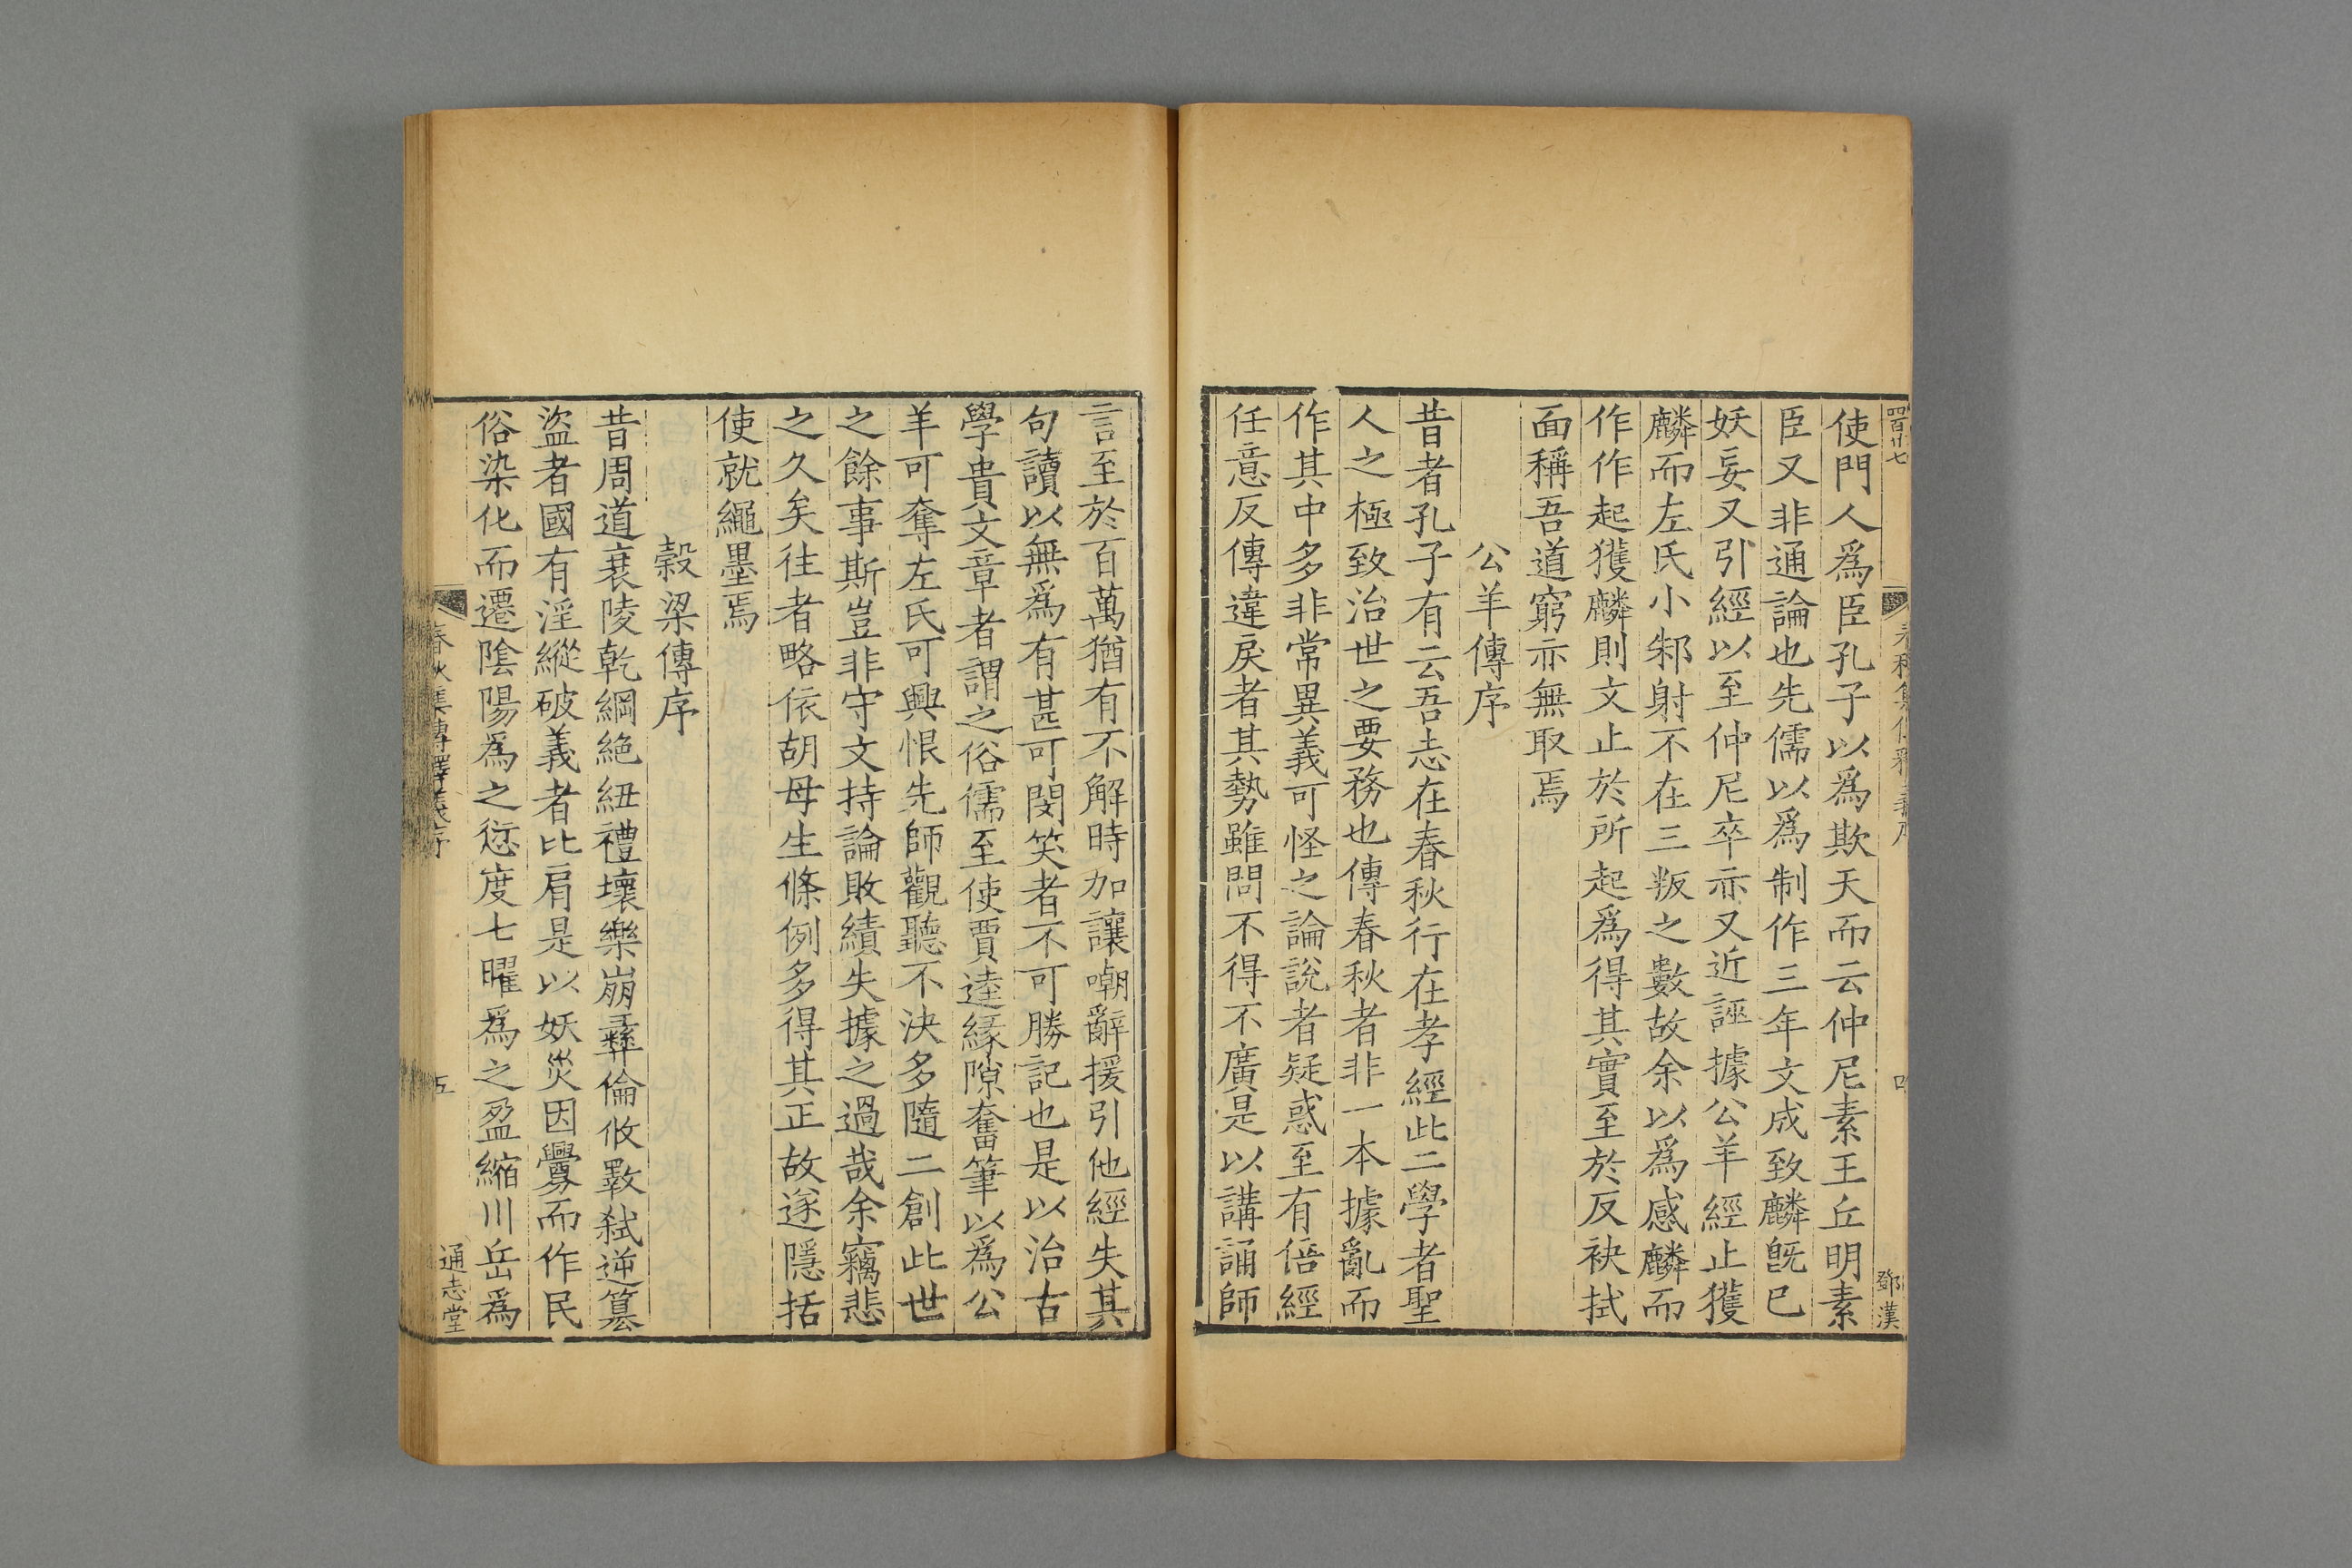 四百廿七
鄧漢
使門人爲臣孔子以爲欺天而云仲尼素王丘明素
臣又非通論也先儒以爲制作三年文成致麟旣已
妖妄又引經以至仲尼卒亦又近誣據公羊經止獲
麟而左氏小邾射不在三叛之數故余以爲感麟而
作作起獲麟則文止於所起爲得其實至於反袂拭
面稱吾道窮亦無取焉
公羊傳序
昔者孔子有云吾志在春秋行在孝經此二學者聖
人之極致治世之要務也傳春秋者非一本據亂而
作其中多非常異義可怪之論說者疑惑至有倍經
任意反傳違戾者其勢雖問不得不廣是以講誦師
言至於百萬猶有不解時加讓嘲辭援引他經失其
句讀以無爲有甚可閔笑者不可勝記也是以治古
學貴文章者謂之俗儒至使賈逵緣隙奮筆以爲公
羊可奪左氏可興恨先師觀聽不決多隨二創此世
之餘事斯豈非守文持論敗績失據之過哉余竊悲
之久矣往者略依胡母生條例多得其正故遂隱括
使就繩墨焉
穀梁傳序
昔周道衰陵乾綱絶紐禮壞樂崩彝倫攸斁弑逆篡
盜者國有淫縱破義者比肩是以妖災因釁而作民
俗染化而遷陰陽爲之愆度七曜爲之盈縮川岳爲
春秋集傳釋義序
五
通志堂